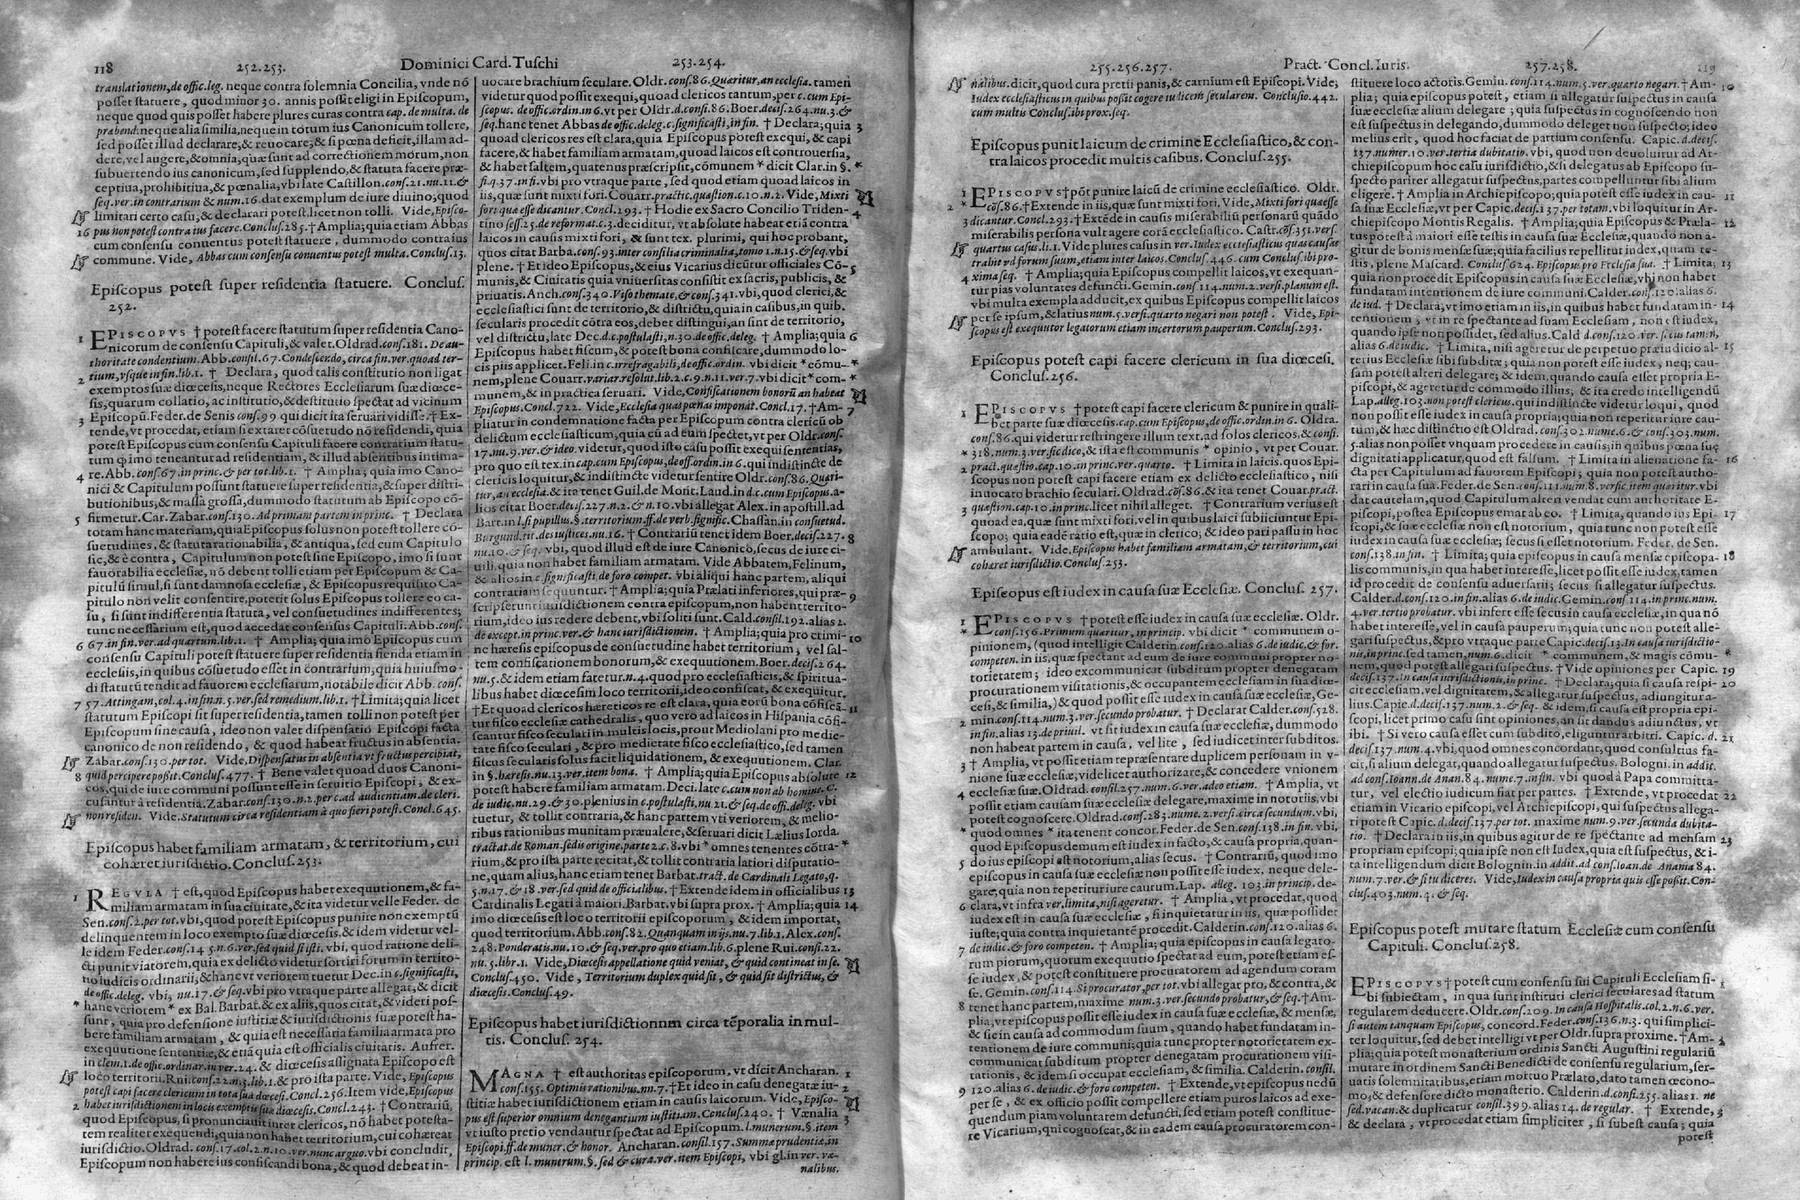 118 252.253. Dominici Card. Tuschi 253.254.
translationem, de offic. leg. neque contra solemnia Concilia, vnde nō
posset statuere, quod minor 30. annis possit eligi in Episcopum,
neque quod quis posset habere plures curas contra cap. de multa. de
prabend. neque alia similia, neque in totum ius Canonicum tollere,
sed posset illud declarare, & reuocare, & si pœna deficit, illam ad-
dere, vel augere, & omnia, quæ sunt ad correctionem morum, non
subuertendo ius canonicum, sed supplendo, & statuta facere præ-
ceptiua, prohibitiua, & pœnalia, vbi late Castillon. cons. 21. nu. 11. &
seq. ver. in contrarium & num. 16. dat exemplum de iure diuino, quod
limitari certo casu, & declarari potest. licet non tolli. Vide, Episco-
16 pus non potest contra ius facere. Conclus. 285. † Amplia; quia etiam Abbas
cum consensu conuentus potest statuere, dummodo contra ius
commune. Vide, Abbas cum consensu conuentus potest multa. Conclus. 13.
Episcopus potest super residentia statuere. Conclus.
252.
1 EPISCOPVS † potest facere statutum super residentia Cano-
nicorum de consensu Capituli, & valet. Oldrad. cons. 181. De au-
thoritate condentium. Abb. consil. 67. Condescendo, circa fin. ver. quod ter-
2 tium, vsque in fin. lib. 1. † Declara, quod talis constitutio non ligat
exemptos suæ diœcesis, neque Rectores Ecclesiarum suæ diœce-
sis, quarum collatio, ac institutio, & destitutio spectat ad vicinum
Episcopū. Feder. de Senis cons. 99 qui dicit ita seruari vidisse. † Ex-
3 tende, vt procedat, etiam si extaret cōsuetudo nō residendi, quia
potest Episcopus cum consensu Capituli facere contrarium statu-
tum q̃ imo teneantur ad residentiam, & illud absentibus intima-
4 re. Abb. cons. 67. in princ. & per tot. lib. 1. † Amplia; quia imo Cano-
nici & Capitulum possunt statuere super residentia, & super distri-
butionibus, & massa grossa, dummodo statutum ab Episcopo cō-
5 firmetur. Car. Zabar. cons. 130. Ad primam partem in princ. † Declara
totam hanc materiam, quia Episcopus solus non potest tollere cō-
suetudines, & statuta rationabilia, & antiqua, sed cum Capitulo
sic, & è contra, Capitulum non potest sine Episcopo, imo si sunt
fauorabilia ecclesiæ, nō debent tolli etiam per Episcopum & Ca-
pitulū simul, si sunt damnosa ecclesiæ, & Episcopus requisito Ca-
pitulo non velit consentire, poterit solus Episcopus tollere eo ca-
su, si sunt indifferentia statuta, vel consuetudines indifferentes;
tunc necessarium est, quod accedat consensus Capituli. Abb. cons.
6 67. in fin. ver. ad quartum. lib. 1. † Amplia; quia imò Episcopus cum
consensu Capituli potest statuere super residentia fienda etiam in
ecclesiis, in quibus cōsuetudo esset in contrarium, quia huiusmo-
di statutū tendit ad fauorem ecclesiarum, notabile dicit Abb. cons.
7 57. Attingam, col. 4. in fin. n. 5. ver. sed remedium. lib. 1. † Limita; quia licet
statutum Episcopi sit super residentia, tamen tolli non potest per
Episcopum sine causa, ideo non valet dispensatio Episcopi facta
canonico de non residendo, & quod habeat fructus in absentia.
Zabar. cons. 130. per tot. Vide, Dispensatus in absentia vt fructus percipiat,
8 quid percipere possit. Conclus. 477. † Bene valet quoad duos Canoni-
cos, qui de iure communi possunt esse in seruitio Episcopi, & ex-
cusantur à residentia. Zabar. cons. 130. n. 2. per c. ad audientiam. de cleri.
non residen. Vide. Statutum circa residentiam à quo fieri potest. Concl. 645.
Episcopus habet familiam armatam, & territorium, cui
cohæret iurisdictio. Conclus. 253.
1 REGVLA † est, quod Episcopus habet exequutionem, & fa-
miliam armatam in sua ciuitate, & ita videtur velle Feder. de
Sen. cons. 2. per tot. vbi, quod potest Episcopus punire non exemptū
delinquentem in loco exempto suæ diœcesis, & idem videtur vel-
le idem Feder. cons. 145. n. 6. ver. sed quid si isti. vbi, quod ratione deli-
cti punit viatorem, quia ex delicto videtur sortiri forum in territo-
rio iudicis ordinarii, & hanc vt veriorem tuetur Dec. in c. significasti,
de offic. deleg. vbi, nu. 17. & seq. vbi pro vtraque parte allegat, & dicit
* hanc veriorem * ex Bal. Barbat. & ex aliis, quos citat, & videri pos-
sunt, quia pro defensione iustitiæ & iurisdictionis suæ potest ha-
bere familiam armatam, & quia est necessaria familia armata pro
exequutione sententiæ, & etiā quia est officialis ciuitatis. Aufrer.
in clem. 1. de offic. ordinar. in ver. 24. & diœcesis assignata Episcopo est
loco territorii. Rui. cons. 22. n. 3. lib. 1. & pro ista parte. Vide, Episcopus
potest capi facere clericum in tota sua diœcesi. Concl. 256. Item vide, Episcopus
2 habet iurisdictionem in locis exemptis suæ diœcesis. Concl. 243. † Contrariū,
quod Episcopus, si pronunciauit inter clericos, nō habet potesta-
tem realiter exequendi, quia non habet territorium, cui cohæreat
iurisdictio. Oldrad. cons. 17. col. 2. n. 10. ver. nunc arguo. vbi concludit,
Episcopum non habere ius confiscandi bona, & quod debeat in-
uocare brachium seculare. Oldr. cons. 86. Quæritur, an ecclesia. tamen
videtur quod possit exequi, quoad clericos tantum, per c. cum Epi-
scopus. de offic. ordin. in 6. vt per Oldr. d. cons. 86. Boer. decis. 264. nu. 3. &
seq. hanc tenet Abbas de offic. deleg. c. significasti, in fin. † Declara; quia 3
quoad clericos res est clara, quia Episcopus potest exequi, & capi
facere, & habet familiam armatam, quoad laicos est controuersia,
& habet saltem, quatenus præscripsit, cōmunem * dicit Clar. in §. *
fi. q. 37. in fi. vbi pro vtraque parte, sed quod etiam quoad laicos in
iis, quæ sunt mixti fori. Couarr. practic. quæstion. c. 10. n. 2. Vide, Mixti
fori quæ esse dicantur. Concl. 293. † Hodie ex Sacro Concilio Triden- 4
tino sess. 25. de reformat. c. 3. deciditur, vt absolute habeat etiā contra
laicos in causis mixti fori, & sunt tex. plurimi, qui hoc probant,
quos citat Barba. cons. 93. inter consilia criminalia, tomo 1. n. 15. & seq. vbi
plene. † Et ideo Episcopus, & eius Vicarius dicūtur officiales Cō- 5
munis, & Ciuitatis quia vniuersitas consistit ex sacris, publicis, &
priuatis. Anch. cons. 340. Viso themate, & cons. 341. vbi, quod clerici, &
ecclesiastici sunt de territorio, & districtu, quia in casibus, in quib.
secularis procedit cōtra eos, debet distingui, an sint de territorio,
vel districtu, late Dec. d. c. postulasti, n. 30. de offic. deleg. † Amplia; quia 6
Episcopus habet fiscum, & potest bona confiscare, dummodo lo-
cis piis applicet. Feli. in c. irrefragabili, de offic. ordin. vbi dicit * cōmu- *
nem, plene Couarr. variar. resolut. lib. 2. c. 9. n. 11. ver. 7. vbi dicit * com- *
munem, & in practica seruari. Vide, Confiscationem bonorū an habeat
Episcopus. Concl. 722. Vide, Ecclesia quas pœnas imponat. Concl. 17. † Am- 7
pliatur in condemnatione facta per Episcopum contra clericū ob
delictum ecclesiasticum, quia cū ad eum spectet, vt per Oldr. cons.
17. nu. 9. ver. & ideo. videtur, quod isto casu possit exequi sententias,
pro quo est tex. in cap. cum Episcopus, de off. ordin. in 6. qui indistincte de
clericis loquitur, & indistincte videtur sentire Oldr. cons. 86. Quæri-
tur, an ecclesia. & ita tenet Guil. de Mont. Laud. in d. c. cum Episcopus. a-
lios citat Boer. decis. 227. n. 2. & n. 10. vbi allegat Alex. in apostill. ad
Bart. in l. si pupillus. §. territorium. ff. de verb. signific. Chassan. in consuetud.
Burgund. tit. des iustices. nu. 16. † Contrariū tenet idem Boer. decis. 227. 8
nu. 10. & seq. vbi, quod illud est de iure Canonico, secus de iure ci-
uili, quia non habet familiam armatam. Vide Abbatem, Felinum,
& alios in c. significasti, de foro compet. vbi aliqui hanc partem, aliqui
contrariam sequuntur. † Amplia; quia Prælati inferiores, qui præ- 9
scripserunt iurisdictionem contra episcopum, non habent territo-
rium, ideo ius redere debent, vbi soliti sunt. Cald. consil. 192. alias 2.
de except. in princ. ver. & hanc iurisdictionem. † Amplia; quia pro crimi- 10
ne hæresis episcopus de consuetudine habet territorium, vel sal-
tem confiscationem bonorum, & exequutionem. Boer. decis. 264.
nu. 5. & idem etiam fatetur. n. 4. quod pro ecclesiasticis, & spiritua-
libus habet diœcesim loco territorii, ideo confiscat, & exequitur.
† Et quoad clericos hæreticos re est clara, quia eorū bona cōfisca- 11
tur fisco ecclesiæ cathedralis, quo vero ad laicos in Hispania cōfi-
scantur fisco seculari in multis locis, prout Mediolani pro medie-
tate fisco seculari, & pro medietate fisco ecclesiastico, sed tamen
fiscus secularis solus facit liquidationem, & exequutionem. Clar.
in §. hæresis. nu. 13. ver. item bona. † Amplia; quia Episcopus absolute 12
potest habere familiam armatam. Deci. late c. cum non ab homine. c.
de iudic. nu. 29. & 30. plenius in c. postulasti, nu. 21. & seq. de offi. deleg. vbi
tuetur, & tollit contraria, & hanc partem vti veriorem, & melio-
ribus rationibus munitam præualere, & seruari dicit Lælius Iorda.
tractat. de Roman. sedis origine. parte 2. c. 8. vbi * omnes tenentes cōtra- *
rium, & pro ista parte recitat, & tollit contraria latiori disputatio-
ne, quam alius, hanc etiam tenet Barbat. tract. de Cardinali Legato, q.
5. n. 17. & 18. ver. sed quid de officialibus. † Extende idem in officialibus 13
Cardinalis Legati à maiori. Barbat. vbi supra prox. † Amplia; quia 14
imo diœcesis est loco territorii episcoporum, & idem importat,
quod territorium. Abb. cons. 82. Quanquam in ijs, nu. 7. lib. 1. Alex. cons.
248. Ponderatis. nu. 10. & seq. ver. pro quo etiam. lib. 6. plene Rui. cons. 22.
nu. 5. libr. 1. Vide, Diœcesis appellatione quid veniat, & quid contineat in se.
Conclus. 450. Vide, Territorium duplex quid sit, & quid sit districtus, &
diœcesis. Conclus. 49.
Episcopus habet iurisdictionnm circa tẽporalia in mul-
tis. Conclus. 254.
MAGNA † est authoritas episcoporum, vt dicit Ancharan. 1
cons. 155. Optimis rationibus. nu. 7. † Et ideo in casu denegatæ iu- 2
stitiæ habet iurisdictionem etiam in causis laicorum. Vide, Episco-
pus est superior omnium denegantium iustitiam. Conclus. 240. † Vænalia 3
vt iusto pretio vendantur spectat ad Episcopum. l. munerum. §. item
Episcopi. ff. de muner. & honor. Ancharan. consil. 157. Summæ prudentiæ, in
princip. est l. munerum. §. sed & cura. ver. item Episcopi, vbi gl. in ver. væ-
nalibus.
255.256.257. Pract. Concl. Iuris. 257.258. 119
nalibus. dicit, quod cura pretii panis, & carnium est Episcopi. Vide,
Iudex ecclesiasticus in quibus possit cogere iudicem secularem. Conclusio. 442.
cum multis Conclus. ibi prox. seq.
Episcopus punit laicum de crimine Ecclesiastico, & con-
tra laicos procedit multis casibus. Conclus. 255.
1 EPISCOPVS † pōt punire laicū de crimine ecclesiastico. Oldr.
2 * cōs. 86. † Extende in iis, quæ sunt mixti fori. Vide, Mixti fori quæ esse
3 dicantur. Concl. 293. † Extẽde in causis miserabiliū personarū quādo
miserabilis persona vult agere corā ecclesiastico. Castr. cōs. 351. vers.
quartus casus. li. 1. Vide plures casus in ver. Iudex ecclesiasticus quas causas
trahit vd forum suum, etiam inter laicos. Conclus. 446. cum Conclus. ibi pro-
4 xima seq. † Amplia; quia Episcopus compellit laicos, vt exequan-
tur pias voluntates defuncti. Gemin. cons. 114. num. 2. versi. planum est.
vbi multa exempla adducit, ex quibus Episcopus compellit laicos
per se ipsum, & latius num. 5. versi. quarto negari non potest. Vide, Epi-
scopus est exequutor legatorum etiam incertorum pauperum. Conclus. 293.
Episcopus potest capi facere clericum in sua diœcesi.
Conclus. 256.
1 EPISCOPVS † potest capi facere clericum & punire in quali-
bet parte suæ diœcesis. cap. cum Episcopus, de offic. ordin. in 6. Oldra.
cons. 86. qui videtur restringere illum text. ad solos clericos, & consi.
* 318. num. 3. ver. sic dico, & ista est communis * opinio, vt per Couar.
2 pract. quæstio. cap. 10. in princ. ver. quarto. † Limita in laicis. quos Epi-
scopus non potest capi facere etiam ex delicto ecclesiastico, nisi
inuocato brachio seculari. Oldrad. cōs. 86. & ita tenet Couar. pract.
3 quæstion. cap. 10. in princ. licet nihil alleget. † Contrarium verius est
quoad ea, quæ sunt mixti fori, vel in quibus laici subiiciuntur Epi-
scopo; quia eadē ratio est, quæ in clerico; & ideo pari passu in hoc
ambulant. Vide, Episcopus habet familiam armatam, & territorium, cui
cohæret iurisdictio. Conclus. 253.
Episeopus est iudex in causa suæ Ecclesiæ. Conclus. 257.
1 EPISCOPVS † potest esse iudex in causa suæ ecclesiæ. Oldr.
* cons. 156. Primum quæritur, in princip. vbi dicit * communem o-
pinionem, (quod intelligit Calderin. cons. 120. alias 6. de iudic. & for.
competen. in iis, quæ spectant ad eum de iure communi propter no-
torietatem; ideo excommunicat subditum propter denegatam
procurationem visitationis, & occupantem ecclesiam in sua diœ-
cesi, & similia,) & quod possit esse iudex in causa suæ ecclesiæ, Ge-
2 min. cons. 114. num. 3. ver. secundo probatur. † Declarat Calder. cons. 528.
in fin. alias 13. de priuil. vt sit iudex in causa suæ ecclesiæ, dummodo
non habeat partem in causa, vel lite, sed iudicet inter subditos.
3 † Amplia, vt possit etiam repræsentare duplicem personam in v-
nione suæ ecclesiæ, videlicet authorizare, & concedere vnionem
4 ecclesiæ suæ. Oldrad. consil. 257. num. 6. ver. adeo etiam. † Amplia, vt
possit etiam causam suæ ecclesiæ delegare, maxime in notoriis, vbi
potest cognoscere. Oldrad. cons. 283. nume. 2. versi. circa secundum. vbi,
* quod omnes * ita tenent concor. Feder. de Sen. cons. 138. in fin. vbi,
quod episcopus demum est iudex in facto, & causa propria, quan-
5 do ius episcopi est notorium, alias secus. † Contrariū, quod imo
episcopus in causa suæ ecclesiæ non possit esse iudex, neque dele-
gare, quia non reperitur iure cautum. Lap. alleg. 103. in princip. de-
6 clara, vt infra ver. limita, nisi ageretur. † Amplia, vt procedat, quod
iudex est in causa suæ ecclesiæ, si inquietatur in iis, quæ possidet
iuste; quia contra inquietantē procedit. Calderin. cons. 120. alias 6.
7 de iudic. & foro competen. † Amplia; quia episcopus in causa legato-
rum piorum, quorum exequutio spectat ad eum, potest etiam es-
se iudex, & potest constituere procuratorem ad agendum coram
se. Gemin. cons. 114. Si procurator, per tot. vbi allegat pro, & contra, &
8 tenet hanc partem, maxime num. 3. ver. secundo probatur, & seq. † Am-
plia, vt episcopus possit esse iudex in causa suæ ecclesiæ, & mensæ,
& sic in causa ad commodum suum, quando habet fundatam in-
tentionem de iure communi; quia tunc propter notorietatem ex-
communicat subditum propter denegatam procurationem visi-
tationis, & idem si occupat ecclesiam, & similia. Calderin. consil.
9 120. alias 6. de iudic. & foro competen. † Extende, vt episcopus nedū
per se, & ex officio possit compellere etiam puros laicos ad exe-
quendum piam voluntatem defuncti, sed etiam potest constitue-
re Vicarium, qui cognoscat, & in eadem causa procuratorem con-
stituere loco actoris. Gemin. cons. 114. num. 5. ver. quarto negari. † Am- 10
plia; quia episcopus potest, etiam si allegatur suspectus in causa
suæ ecclesiæ alium delegare; quia suspectus in cognoscendo non
est suspectus in delegando, dummodo deleget non suspecto; ideo
melius erit, quod hoc faciat de partium consensu. Capic. d. decis.
137. numer. 10. ver. tertia dubitatio. vbi, quod non deuoluitur ad Ar-
chiepiscopum hoc casu iurisdictio, & si delegatus ab Episcopo su-
specto pariter allegatur suspectus, partes compelluntur sibi alium
eligere. † Amplia in Archiepiscopo; quia potest esse iudex in cau- 11
sa suæ Ecclesiæ, vt per Capic. decis. 137. per totam. vbi loquitur in Ar-
chiepiscopo Montis Regalis. † Amplia; quia Episcopus & Præla- 12
tus potest à maiori esse testis in causa suæ Ecclesiæ, quando non a-
gitur de bonis mensæ suæ; quia facilius repellitur index, quam te-
stis. plene Mascard. Conclus. 624. Episcopus pro Ecclesia sua. † Limita; 13
quia episcopus non est iudex in causa suæ Ecclesiæ, vbi non habet
fundatam intentionem de iure communi. Calder. cons. 120. alias 6.
de iud. † Declara, vt imo etiam in iis, in quibus habet fundatam in- 14
tentionem, vt in respectante ad suam Ecclesiam, non est iudex,
quando ipse non possidet, sed alius. Cald d. cons. 120. ver. secus tamen,
alias 6. de iudic. † Limita, nisi ageretur de perpetuo præiudicio al- 15
terius Ecclesiæ sibi subditæ; quia non potest esse iudex, neq; cau-
sam potest alteri delegare; & idem, quando causa esset propria E-
piscopi, & agretur de commodo illius, & ita credo intelligendū
Lap. alleg. 103. non potest clericus. qui indistincte videtur loqui, quod
non possit esse iudex in causa propria; quia non reperitur iure cau-
tum, & hæc distinctio est Oldrad. cons. 302. nume. 6. & cons. 303. num.
5. alias non posset vnquam procedere in causis; in quibus pœna suę
dignitati applicatur, quod est falsum. † Limita in alienatione fa- 16
cta per Capitulum ad fauorem Episcopi; quia non potest autho-
rari in causa sua. Feder. de Sen. cons. 111. num. 8. versic. item quæritur. vbi
dat cautelam, quod Capitulum alteri vendat cum authoritate E-
piscopi, postea Episcopus emat ab eo. † Limita, quando ius Epi- 17
scopi, & suæ ecclesiæ non est notorium, quia tunc non potest esse
iudex in causa suæ ecclesiæ, secus si esset notorium. Feder. de Sen.
cons. 138. in fin. † Limita; quia episcopus in causa mensæ episcopa- 18
lis communis, in qua habet interesse, licet possit esse iudex, tamen
id procedit de consensu aduersarii; secus si allegatur suspectus.
Calder. d. cons. 120. in fin. alias 6. de iudic. Gemin. cons. 114. in princ. num.
4. ver. tertio probatur. vbi infert esse secus in causa suæ, in qua nō
habet interesse, vel in causa pauperum; quia tunc non potest alle-
gari suspectus, & pro vtraque parte Capic. decis. 13. In causa iurisdictio-
nis, in princip. sed tamen, num. 6. dicit * communem, & magis cōmu- *
nem, quod potest allegari suspectus. † Vide opiniones per Capic. 19
decis. 137. In causa iurisdictionis, in princ. † Declara; quia si causa respi- 20
cit ecclesiam, vel dignitatem, & allegatur suspectus, adiungitur a-
lius. Capic. d. decis. 137. num. 2. & seq. & idem, si causa est propria epi-
scopi, licet primo casu sint opiniones, an sit dandus adiunctus, vt
ibi. † Si vero causa esset cum subdito, eliguntur arbitri. Capic. d. 21
decis. 137. num. 4. vbi, quod omnes concordant, quod consultius fa-
cit, si alium delegat, quando allegatur suspectus. Bologni. in addit.
ad cons. Ioann. de Anan. 84. nume. 7. in fin. vbi quod à Papa committa-
tur, vel electio iudicum fiat per partes. † Extende, vt procedat 22
etiam in Vicario episcopi, vel Archiepiscopi, qui suspectus allega-
ri potest Capic. d. decis. 137. per tot. maxime num. 9. ver. secunda dubita-
tio. † Declara in iis, in quibus agitur de re spectante ad mensam 23
propriam episcopi; quia ipse non est Iudex, quia est suspectus, & i-
ta intelligendum dicit Bolognin. in addit. ad cons. Ioan. de Anania 84.
num. 7. ver. & si tu diceres. Vide, Iudex in causa propria quis esse possit. Con-
clus. 403. num. 4. & seq.
Episcopus potest mutare statum Ecclesiæ cum consensu
Capituli. Conclus. 258.
EPISCOPVS † potest cum consensu sui Capituli Ecclesiam si- 1
bi subiectam, in qua sunt instituti clerici seculares ad statum
regularem deducere. Oldr. cons. 209. In causa Hospitalis. col. 2. n. 6. ver.
si autem tanquam Episcopus, concord. Feder. cons. 136. n. 3. qui simplici-
ter loquitur, sed debet intelligi vt per Oldr. supra proxime. † Am- 2
plia; quia potest monasterium ordinis Sancti Augustini regulariū
mutare in ordinem Sancti Benedicti de consensu regularium, ser-
uatis solemnitatibus, etiam mortuo Prælato, dato tamen œcono-
mo, & defensore dicto monasterio. Calderin. d. consi. 255. alias 1. ne
sed. vacan. & duplicatur consil. 399. alias 14. de regular. † Extende, 3
& declara, vt procedat etiam simpliciter, si subest causa; quia
potest